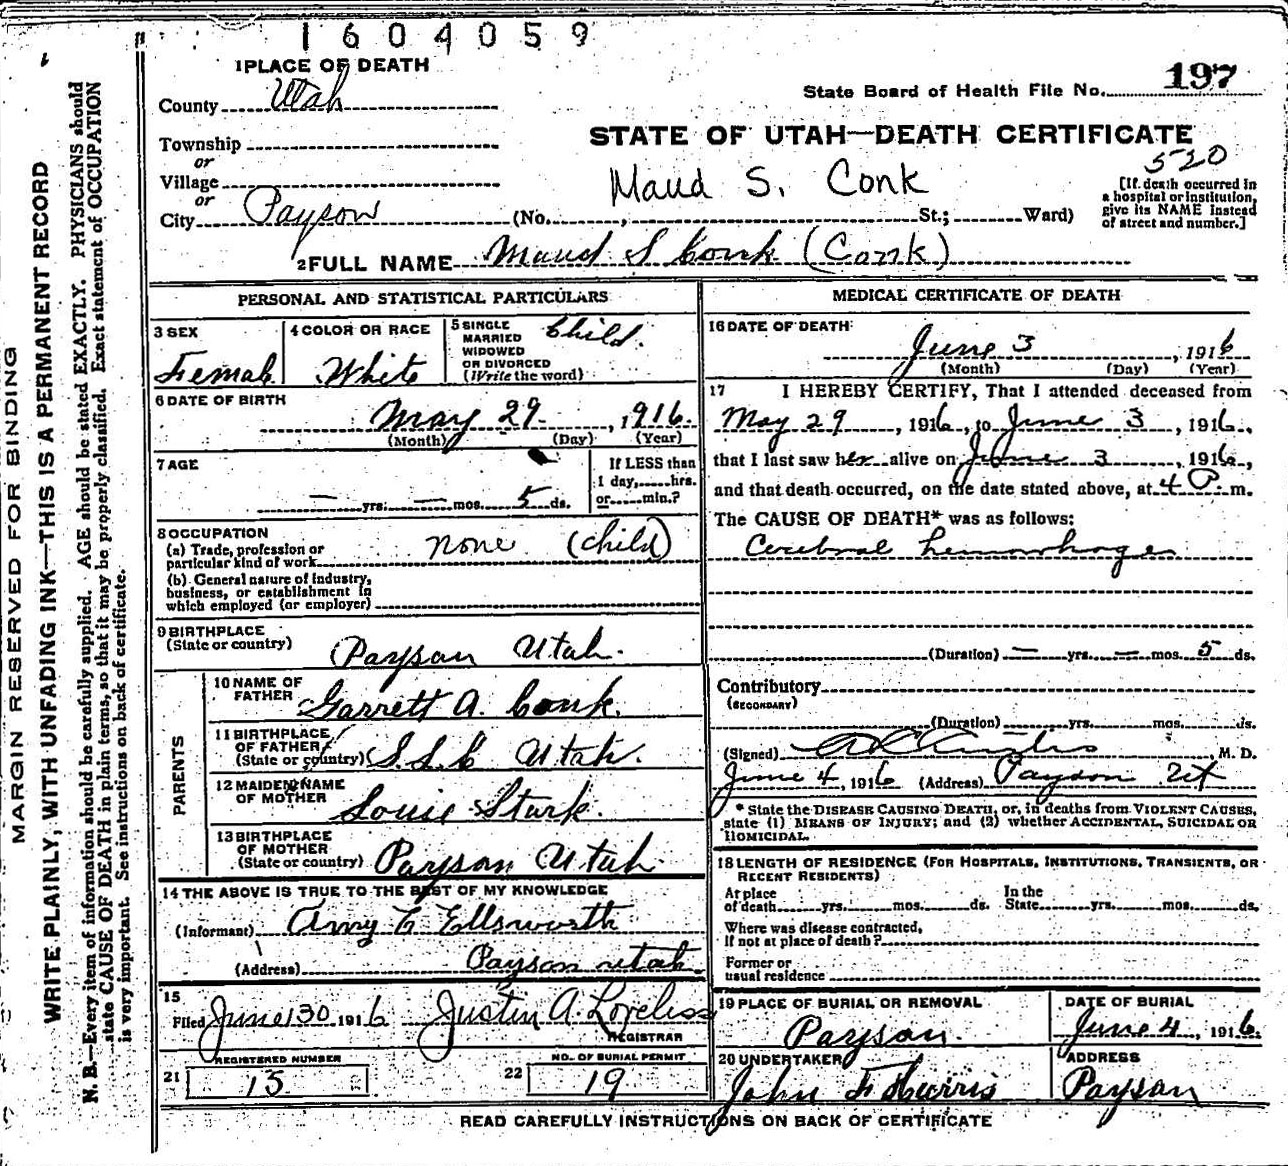 1604059
1 PLACE OF DEATH
County Utah
State Board of Health File No. 197
Township
or
Village
or
City Payson (No. , St.; Ward)
STATE OF UTAH—DEATH CERTIFICATE
520
Maud S. Conk
[If death occurred in
a hospital or institution,
give its NAME instead
of street and number.]
2 FULL NAME Maud S Conk (Conk)
PERSONAL AND STATISTICAL PARTICULARS
3 SEX
Female
4 COLOR OR RACE
White
5 SINGLE
MARRIED
WIDOWED
OR DIVORCED
(Write the word)
Child.
6 DATE OF BIRTH
May 29 , 1916.
(Month) (Day) (Year)
7 AGE
— yrs. — mos. 5 ds.
If LESS than
1 day, hrs.
or min.?
8 OCCUPATION
(a) Trade, profession or
particular kind of work none (child)
(b) General nature of industry,
business, or establishment in
which employed (or employer)
9 BIRTHPLACE
(State or country)
Payson Utah.
PARENTS
10 NAME OF
FATHER
Garrett A. Conk.
11 BIRTHPLACE
OF FATHER
(State or country) S.L.C Utah.
12 MAIDEN NAME
OF MOTHER
Louie Stark.
13 BIRTHPLACE
OF MOTHER
(State or country) Payson Utah.
14 THE ABOVE IS TRUE TO THE BEST OF MY KNOWLEDGE
(Informant) Amy E Ellsworth
(Address) Payson Utah.
15
Filed June 30 1916 Justin A. Loveless
REGISTRAR
REGISTERED NUMBER
21 15
NO. OF BURIAL PERMIT
22 19
MEDICAL CERTIFICATE OF DEATH
16 DATE OF DEATH
June 3 , 1916
(Month) (Day) (Year)
17 I HEREBY CERTIFY, That I attended deceased from
May 29 , 1916, to June 3 , 1916.,
that I last saw her alive on June 3 , 1916,
and that death occurred, on the date stated above, at 4 P. m.
The CAUSE OF DEATH* was as follows:
Cerebral hemorrhages
(Duration) — yrs. — mos. 5 ds.
Contributory
(SECONDARY)
(Duration) yrs. mos. ds.
(Signed) M. D.
June 4, 1916 (Address) Payson Ut
* State the DISEASE CAUSING DEATH, or, in deaths from VIOLENT CAUSES,
state (1) MEANS OF INJURY; and (2) whether ACCIDENTAL, SUICIDAL OR
HOMICIDAL.
18 LENGTH OF RESIDENCE (FOR HOSPITALS, INSTITUTIONS, TRANSIENTS, OR
RECENT RESIDENTS)
At place
of death yrs. mos. ds.
In the
State yrs. mos. ds.
Where was disease contracted,
if not at place of death?
Former or
usual residence
19 PLACE OF BURIAL OR REMOVAL
Payson.
DATE OF BURIAL
June 4, 1916.
20 UNDERTAKER
John F Harris
ADDRESS
Payson
READ CAREFULLY INSTRUCTIONS ON BACK OF CERTIFICATE
MARGIN RESERVED FOR BINDING
WRITE PLAINLY, WITH UNFADING INK—THIS IS A PERMANENT RECORD
N. B.—Every item of information should be carefully supplied. AGE should be stated EXACTLY. PHYSICIANS should
state CAUSE OF DEATH in plain terms, so that it may be properly classified. Exact statement of OCCUPATION
is very important. See instructions on back of certificate.